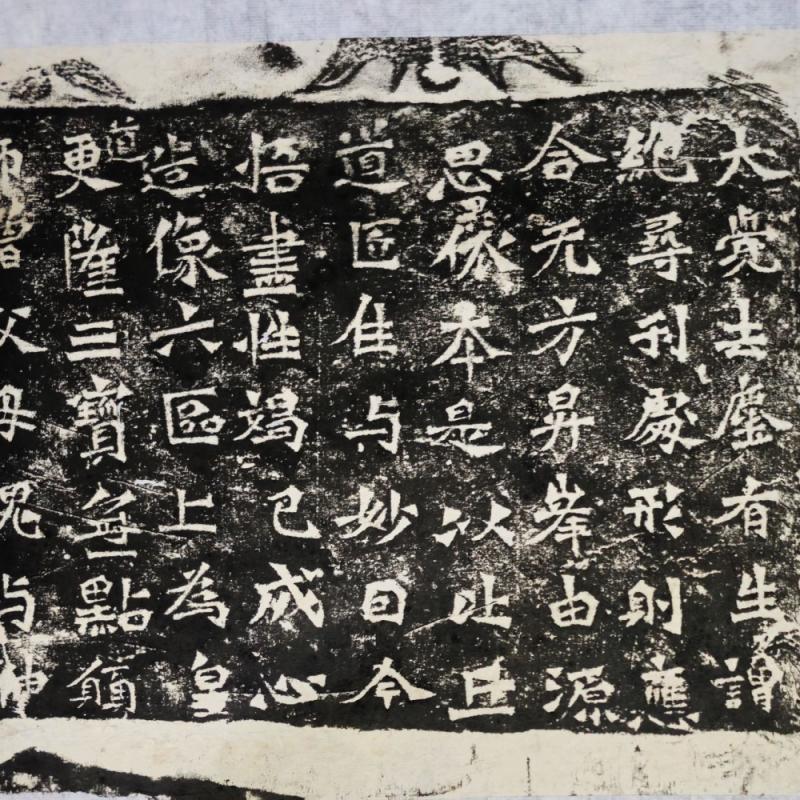 大覺去塵有生謂
絕尋刋處形則應
合无方昇峯由源
思依本是以比丘
道匠住与妙囙今
悟盡性竭己成心
造像六區上為皇
道更隆三寶無點願
師僧父母魂与神